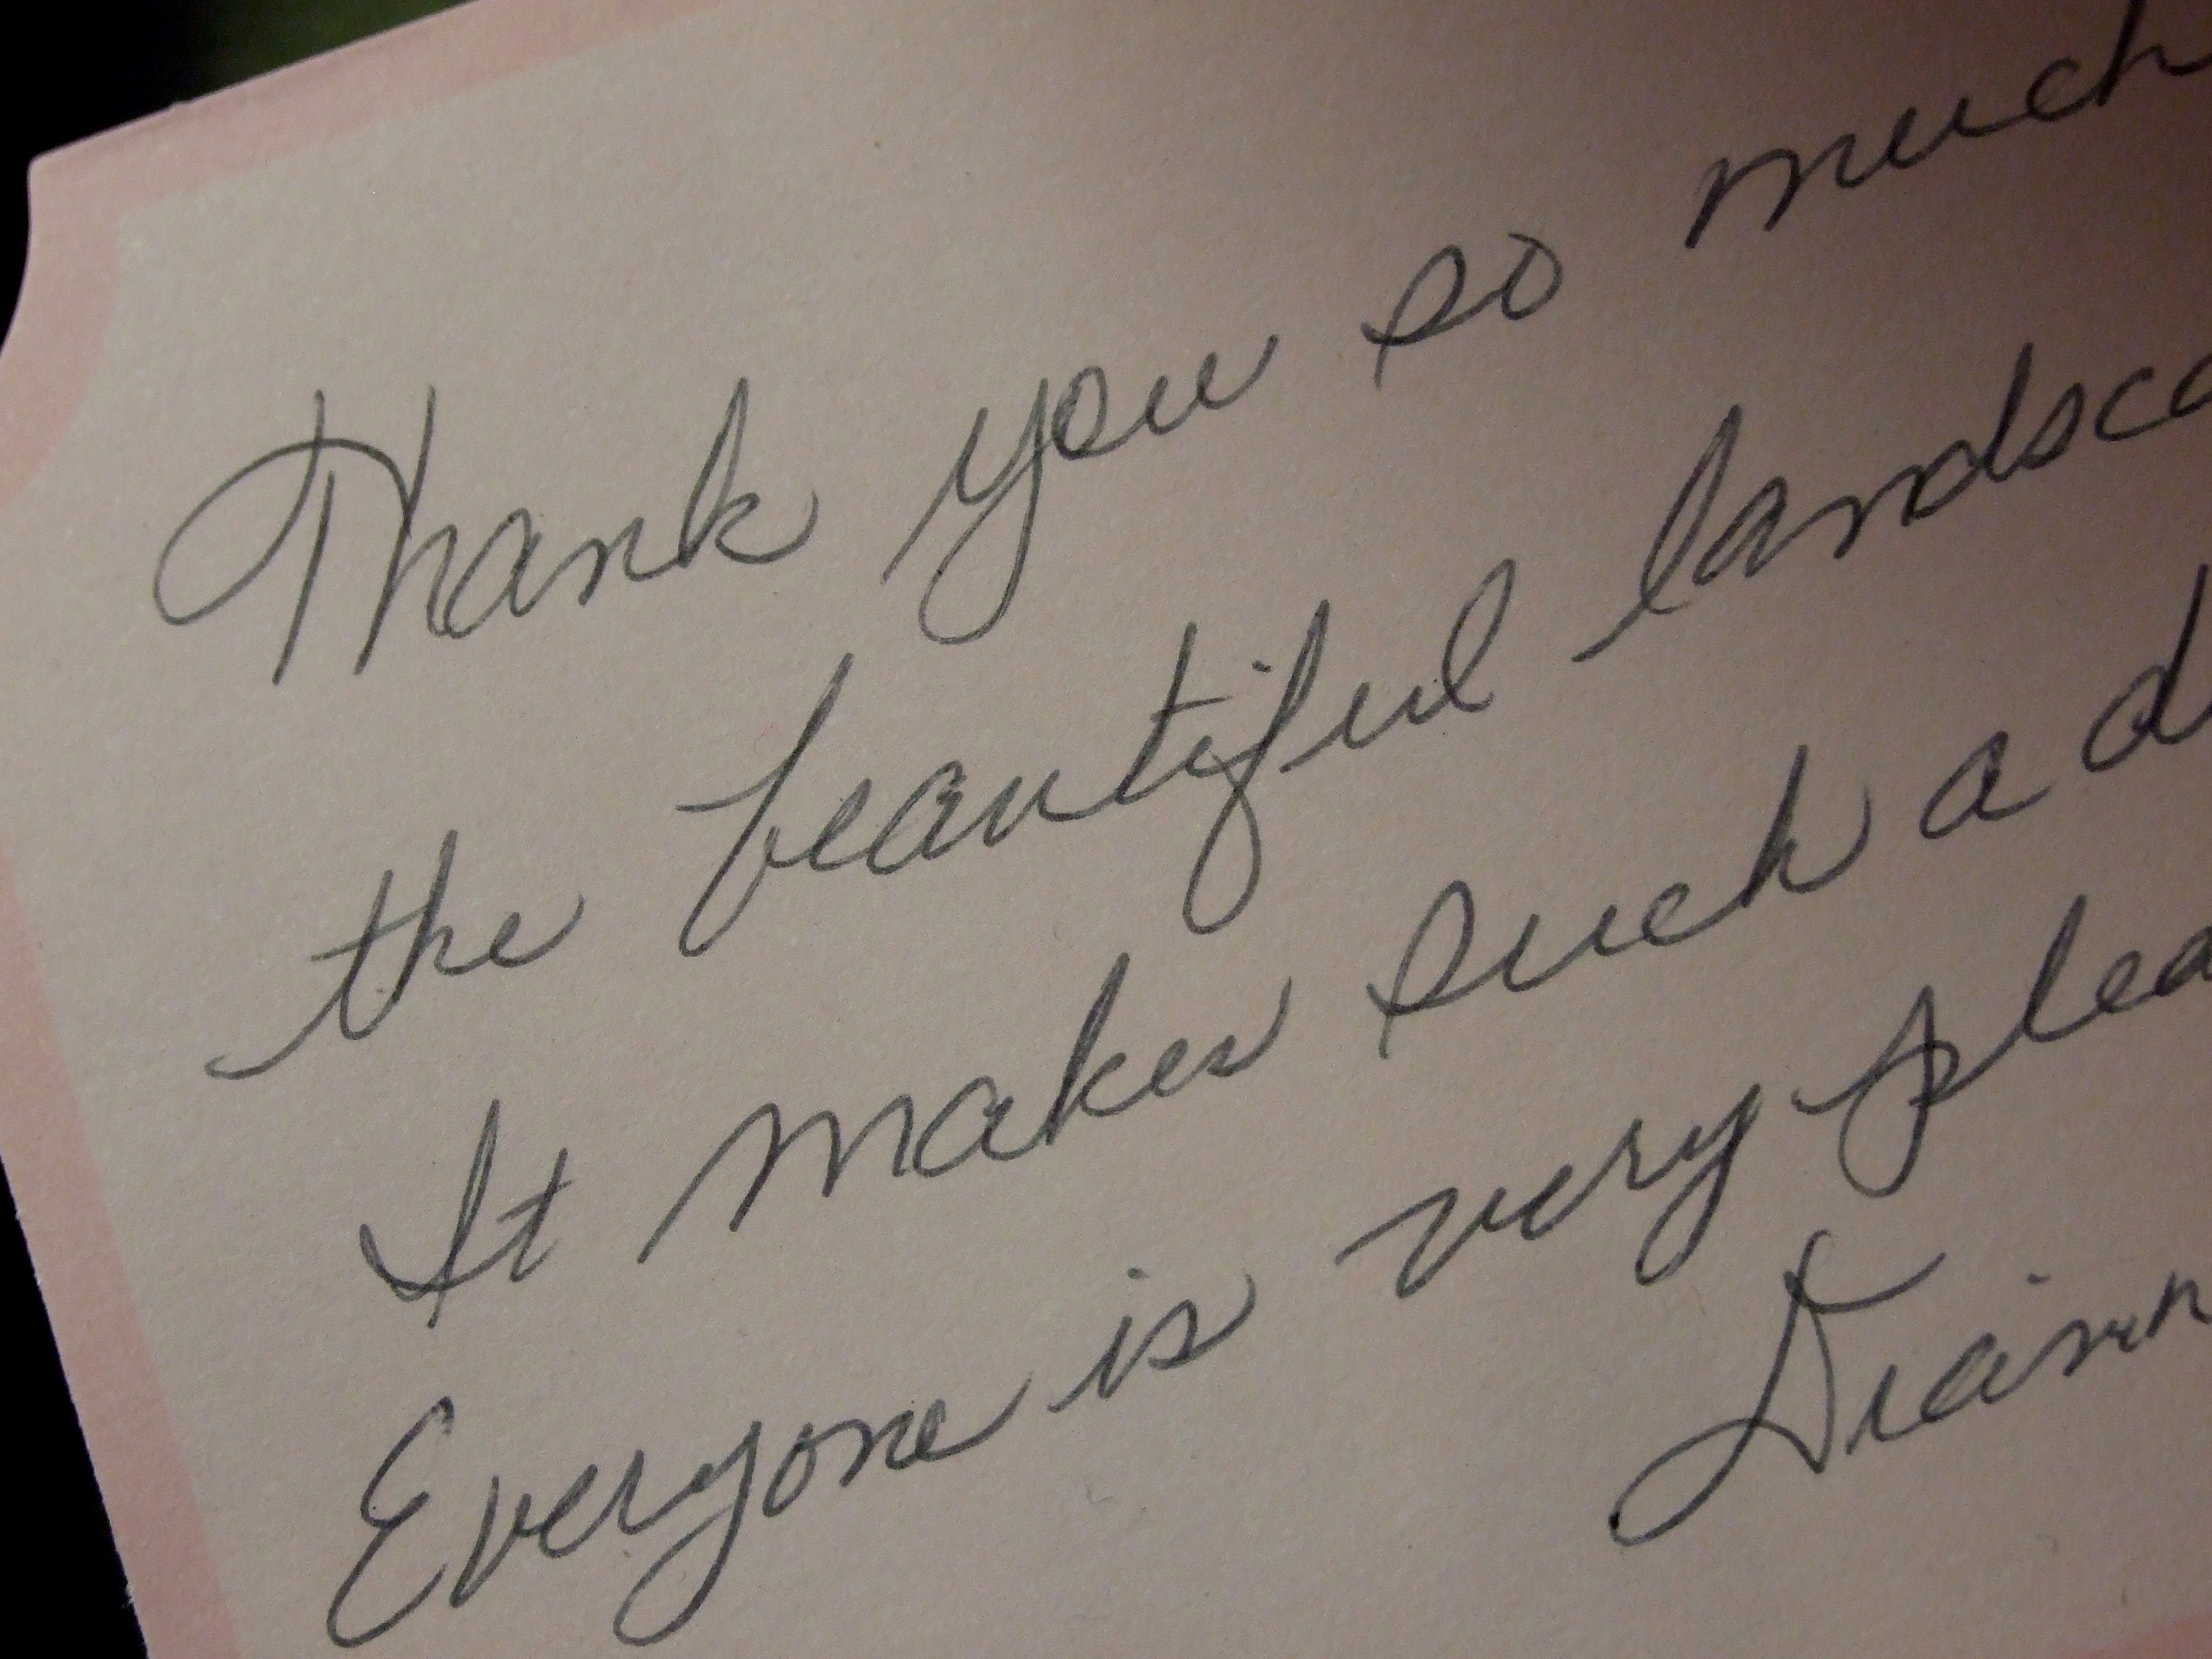 Thank you so much
the beautiful landsca
It makes such a d
Everyone is very plea
Diann